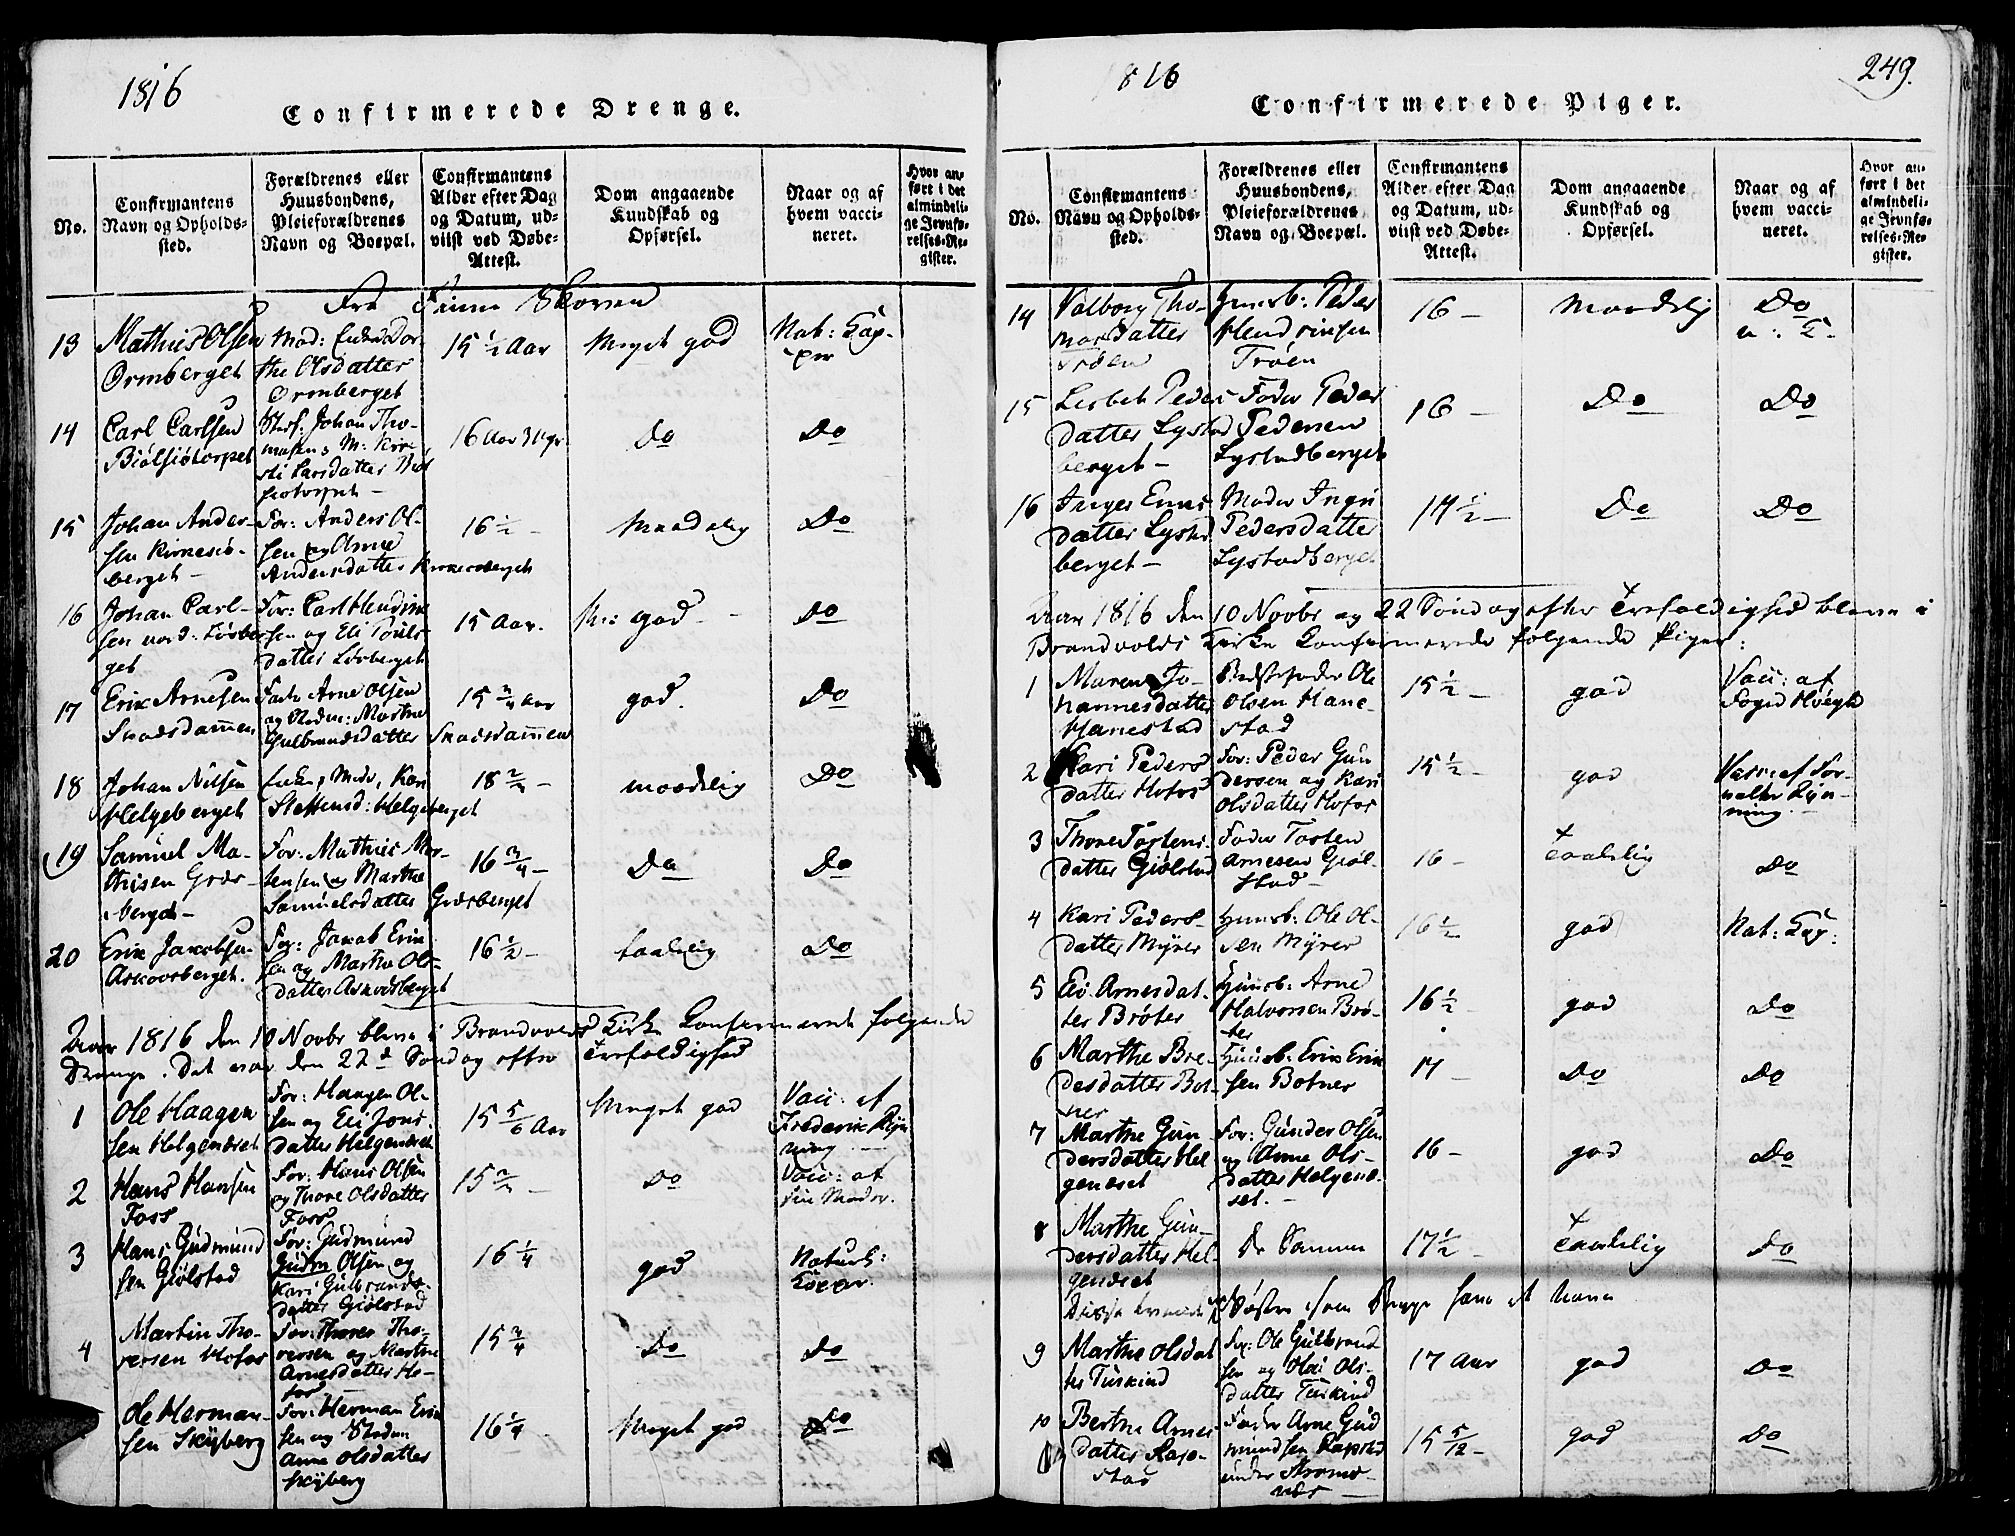 1816
Confirmerede Drenge.
No.
Confirmantens
Navn og Opholds-
sted.
Forældrenes eller
Huusbondens,
Pleieforældrenes
Navn og Boepæl.
Confirmantens
Alder efter Dag
og Datum, ud-
viist ved Døbe-
Attest.
Dom angaaende
Kundskab og
Opførsel.
Naar og af
hvem vacci-
neret.
Hvor an-
ført i det
almindeli-
ge Jevnfø-
relses-Re-
gister.
Fra Finne Skoven
13
Mathies Olsen
Ormberget
Mod: Dor-
the Olsdatter
Ormberget
15 1/2 Aar
Meget god
Nat: Kop-
per
14
Carl Carlsen
Biölsiötorpet
Stef: Johan Tho-
masen M: Kir-
sti Larsdatter
16 Aar
Do
Do
15
Johan Ander-
sen Kirkesiö-
berget -
For: Anders Ol-
sen og Anne
Andersdatter
16 1/2 -
Maadelig
Do
16
Johan Carl-
sen Lövber
get
For: Carl Hendrik
sen og Eli Pouls-
datter Lövberget
15 Aar.
M: god -
Do
17
Erik Arnesen
Skasdammen
Arne Olsen
og Marthe
Gulbrandsdatter Skasdammen
15 3/4 Aar
god.
Do
18
Johan Nilsen
Helgeberget
Moder, Kari
Steffensd: Helgeberget
18 1/2 -
maadelig
Do
19
Samuel Ma-
thisen Græs-
berget -
For: Mathies Mor-
tensen og Marthe
Samuelsdatter Græsberget
16 3/4 -
Do
Do
20
Erik Jacobsen
Askovsberget.
For: Jacob Erik
sen og Marthe Ol-
datter Askovsberget
16 1/2 -
taalelig
Do
Aar 1816 den 10 Novbr bleve i Brandvolds Kirke Confirmerede følgende
Drenge. Det var den 22d Söndag efter Trefoldighed
1
Ole Haagen
sen Helgenæset
For: Haagen Ol-
sen og Eli Jons-
datter Helgenæset
15 5/6 Aar
Meget god
Vacc: af
Frederik Ryn
ning -
2
Hans Hansen
Foss
For: Hans Olsen
og Thore Olsdatter
Foss
15 1/2 -
Do
Vacc: af
sin Moder.
3
Hans Gudmund
sen Giölstad
For: Gudmund
Gudm Olsen og
Kari Gulbrands-
datter Giölstad
16 1/4
god
Naturl:
Kopper.
4
Martin Tho-
resen Hofos
For: Thorer Tho-
resen og Marthe
Arnesdatter Ho-
fos
15 3/4
Do
Do
Ole Herman-
sen Skÿberg
For: Herman Erik
sen og
Anne Olsdatter
Skÿberg
16 1/4
Meget god
Do
1816
249.
Confirmerede Piger.
No.
Confirmantens
Navn og Opholds-
sted.
Forældrenes eller
Huusbondens,
Pleieforældrenes
Navn og Boepæl.
Confirmantens
Alder efter Dag
og Datum, ud-
viist ved Døbe-
Attest.
Dom angaaende
Kundskab og
Opførsel.
Naar og af
hvem vacci-
neret.
Hvor an-
ført i det
almindeli-
ge Jevnfø-
relses-Re-
gister.
14
Valborg Tho-
masdatter
Tröen
Huusb: Peder
Hendriksen
Tröen
16 -
Maadelig
Do
15
Lisbeth Peders
datter Lystad
berget -
Fader Peder
Pedersen
Lystadberget
16 -
Do
Do
16
Inger
datter Lystad
berget -
Moder Ingri
Pedersdatter
Lystadberget
17 1/2 -
Do
Do
Aar 1816 den 10 Novbr og 22 Söndag efter Trefoldighed bleve i
Brandvolds Kirke Confirmerede følgende Piger:
1
Maren Jo-
hannesdatter
Hanestad
Bedstefader Ole
Olsen Hane-
stad
15 1/2 -
god
Vacc: af
Foged Höegh
2
Kari Peders
datter Hofos
For: Peder Gun
dersen og Kari
Olsdatter Hofos
15 1/2 -
god
Vacc: af For-
valter Ryn-
ning. -
3
Thore Tostens
datter Giölstad
Fader Tosten
Arnesen Giöl-
stad -
16 -
Taalelig
Do
4
Kari Peders
datter Myrer
Huusb: Ole Ol-
sen Myrer
16 1/2
god
Nat: Kop:
5
Arnesdat-
ter Bröter
Huusb: Arne
Halvorsen Brö-
ter
16 1/2
god
Do
6
Marthe Bre-
desdatter Bot-
ner
Huusb: Erik Erik
sen Botner
17 -
Do
Do
7
Marthe Gun
dersdatter Hel
genæset
For: Gunder Olsen
og Anne Ols-
datter Helgenæ-
set. -
16 -
god
Do
8
Marthe Gun-
dersdatter Hel-
genæset
De Samme
17 1/2 -
Taalelig
Do
Disse Söstre som Begge have et Navn
9
Marthe Olsdat
ter Turkind
For: Ole Gulbrand
sen og Ols-
datter Turkind
17 Aar
god
Do
10
Berthe Arnes
datter Rasp-
stad
Fader Arne Gud
mundsen
under Stromo-
næs -
15 5/12 -
god
Do